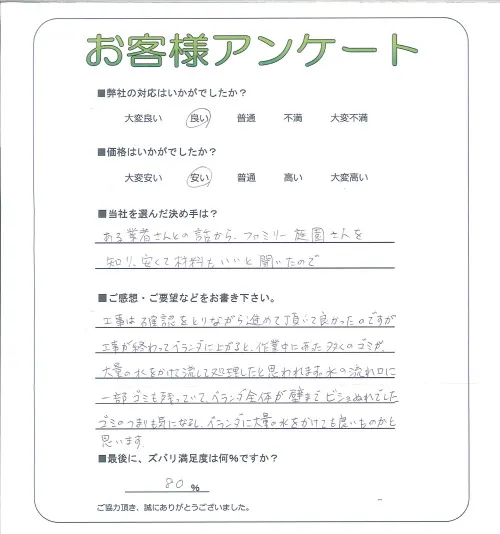 お客様アンケート
■弊社の対応はいかがでしたか？
大変良い 良い 普通 不満 大変不満
■価格はいかがでしたか？
大変安い 安い 普通 高い 大変高い
■当社を選んだ決め手は？
ある業者さんとの話から、ファミリー庭園さんを
知り、安くて材料もいいと聞いたので
■ご感想・ご要望などをお書き下さい。
工事は確認をとりながら進めて頂いて良かったのですが
工事が終わってベランダに上がると、作業中に出た多くのゴミが、
大量の水をかけて流して処理したと思われます。水の流れ口に
一部ゴミも残っていて、ベランダ全体が壁までビショぬれでした
ゴミのつまりも気になるし、ベランダに大量の水をかけても良いものかと
思います。
■最後に、ズバリ満足度は何％ですか？
80 %
ご協力頂き、誠にありがとうございました。